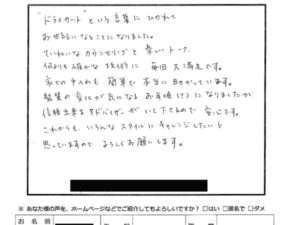 "ドライカット" という言葉にひかれて
お世話になることになりました。
ていねいなカウンセリングと楽しいトーク、
何よりも確かな技術に毎回大満足です。
家での手入れも簡単で本当に助かっています。
髪質の変化が気になるお年頃(?)になりましたが
信頼出来るアドバイザーがいて下さるので安心です。
これからも、いろんなスタイルにチャレンジしたいと
思っていますので よろしくお願いします。
※ あなた様の声を、ホームページなどでご紹介してもよろしいですか? □はい □匿名で □ダメ
お 名 前